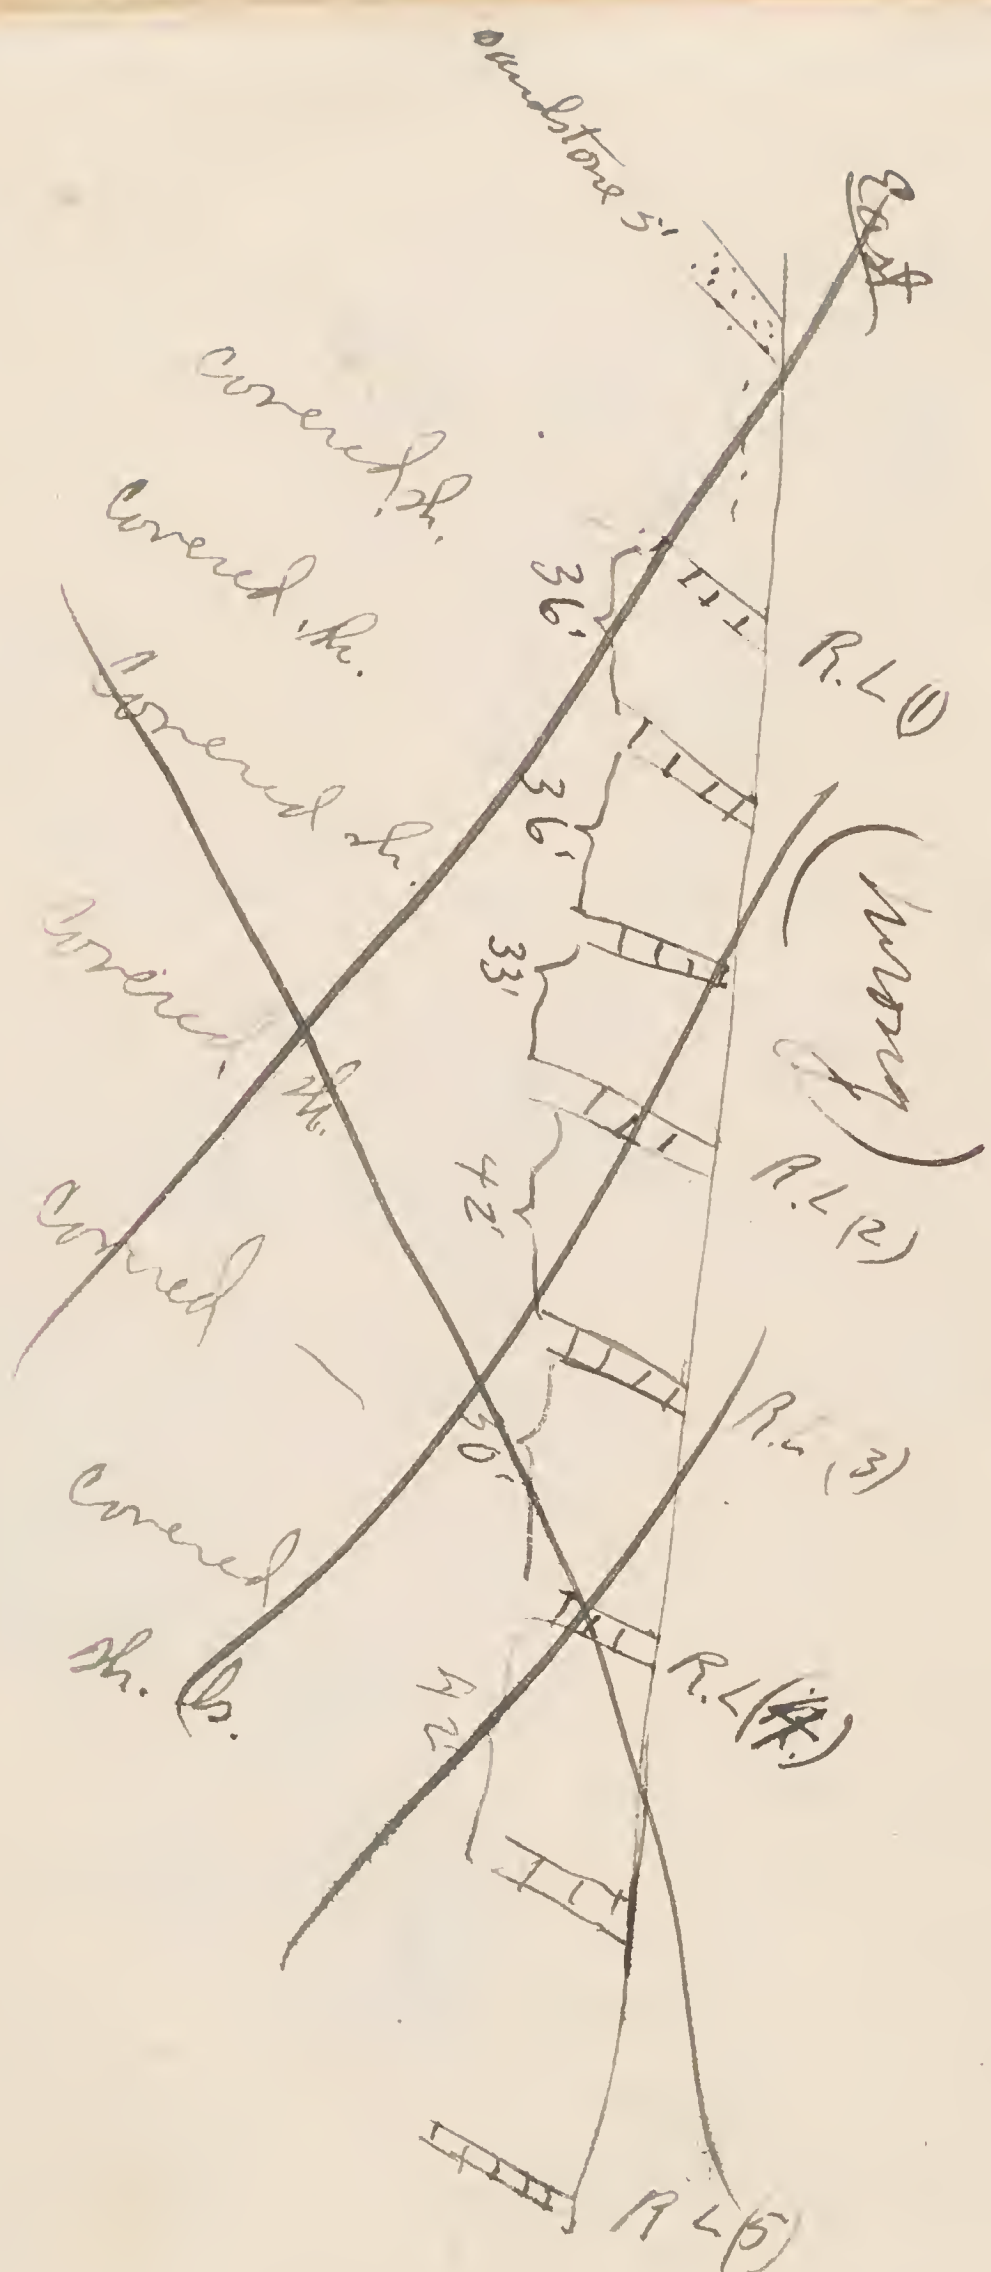 East
sandstone 5'
covered sh.
covered sh.
covered sh.
covered sh.
covered
covered
sh. ls.
36'
36'
33'
42'
30'
42'
R.L (1)
(Wrong)
R.L (2)
R.L (3)
R.L (4)
R L (5)